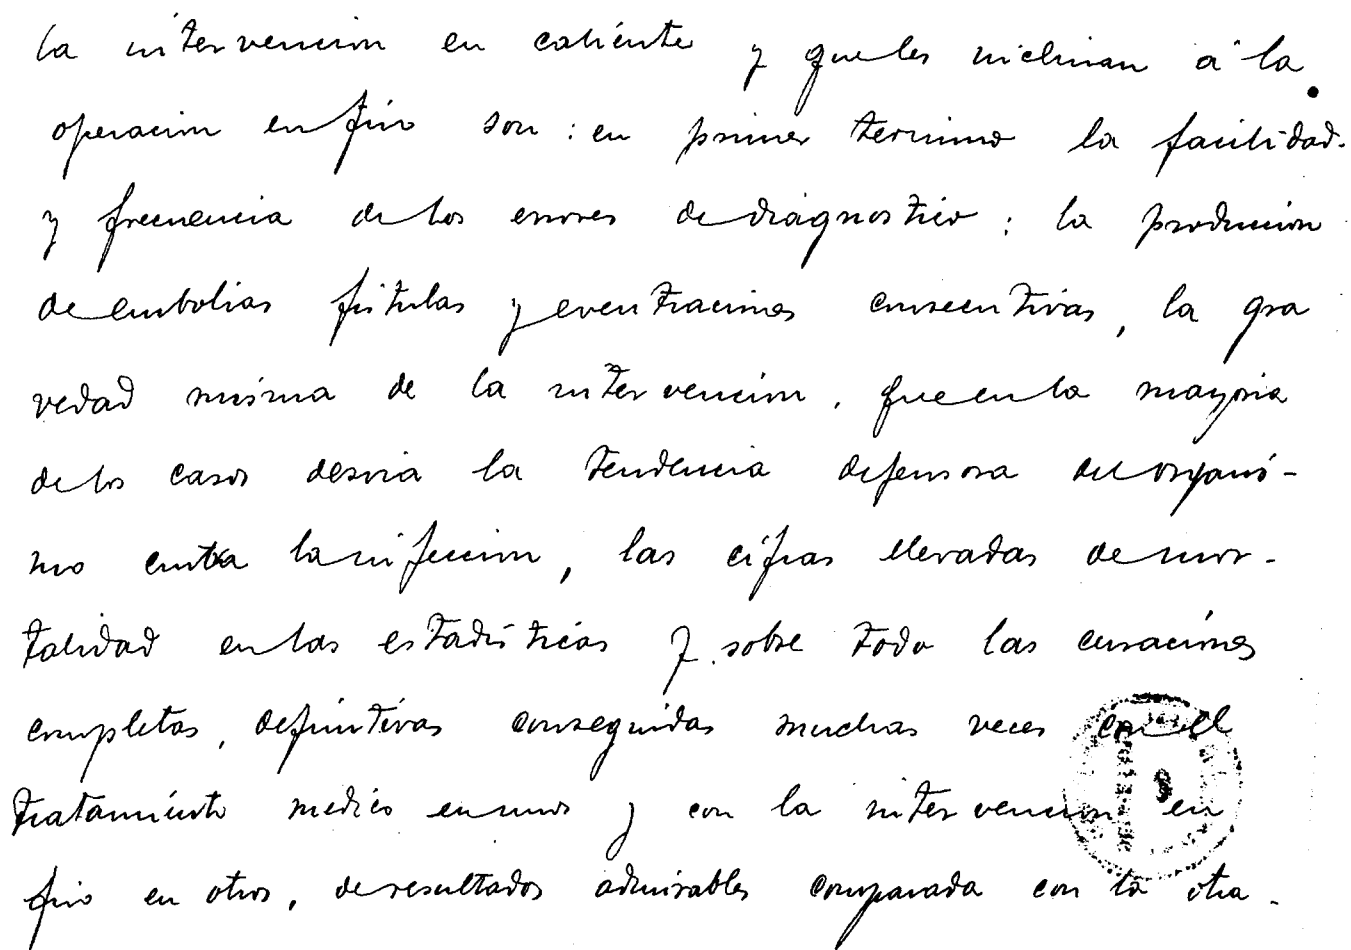 la intervencion en caliente y que les inclinan á la
operacion en frio son : en primer termino la facilidad.
y frecuencia de los errores de diágnostico : la producion
de embolias fistulas y eventraciones consecutivas, la gra
vedad misma de la intervencion, que en la mayoria
de los casos desvia la tendencia defensora del organis-
mo contra la infeccion, las cifras elevadas de mor-
talidad en las estadisticas y sobre todo las curaciones
completas, definitivas conseguidas muchas veces con el
tratamiento medico en unos y con la intervencion en
frio en otros, de resultados admirables comparada con la otra.